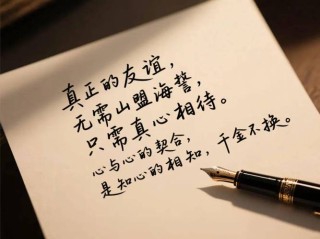 真正的友谊，
无需山盟海誓，
只需真心相待。
心与心的契合，
是知心的相知，千金不换。